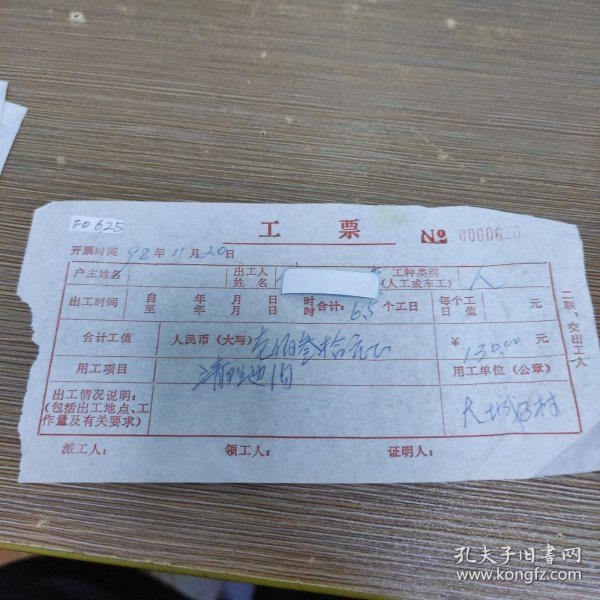 F0625
工 票
№ 0000620
开票时间 98 年 11 月 20 日
户主姓名
出工人姓名
工种类别(人工或车工)
人
出工时间
自 年 月 日 时
至 年 月 日 时
合计: 6.5 个工日
每个工日值
元
合计工值
人民币(大写) 壹佰叁拾元正
¥ 130.00 元
用工项目
清
用工单位(公章)
出工情况说明:
(包括出工地点、工作量及有关要求)
大城 村
派工人:
领工人:
证明人:
二联:交出工人
孔夫子旧书网
www.kongfz.com